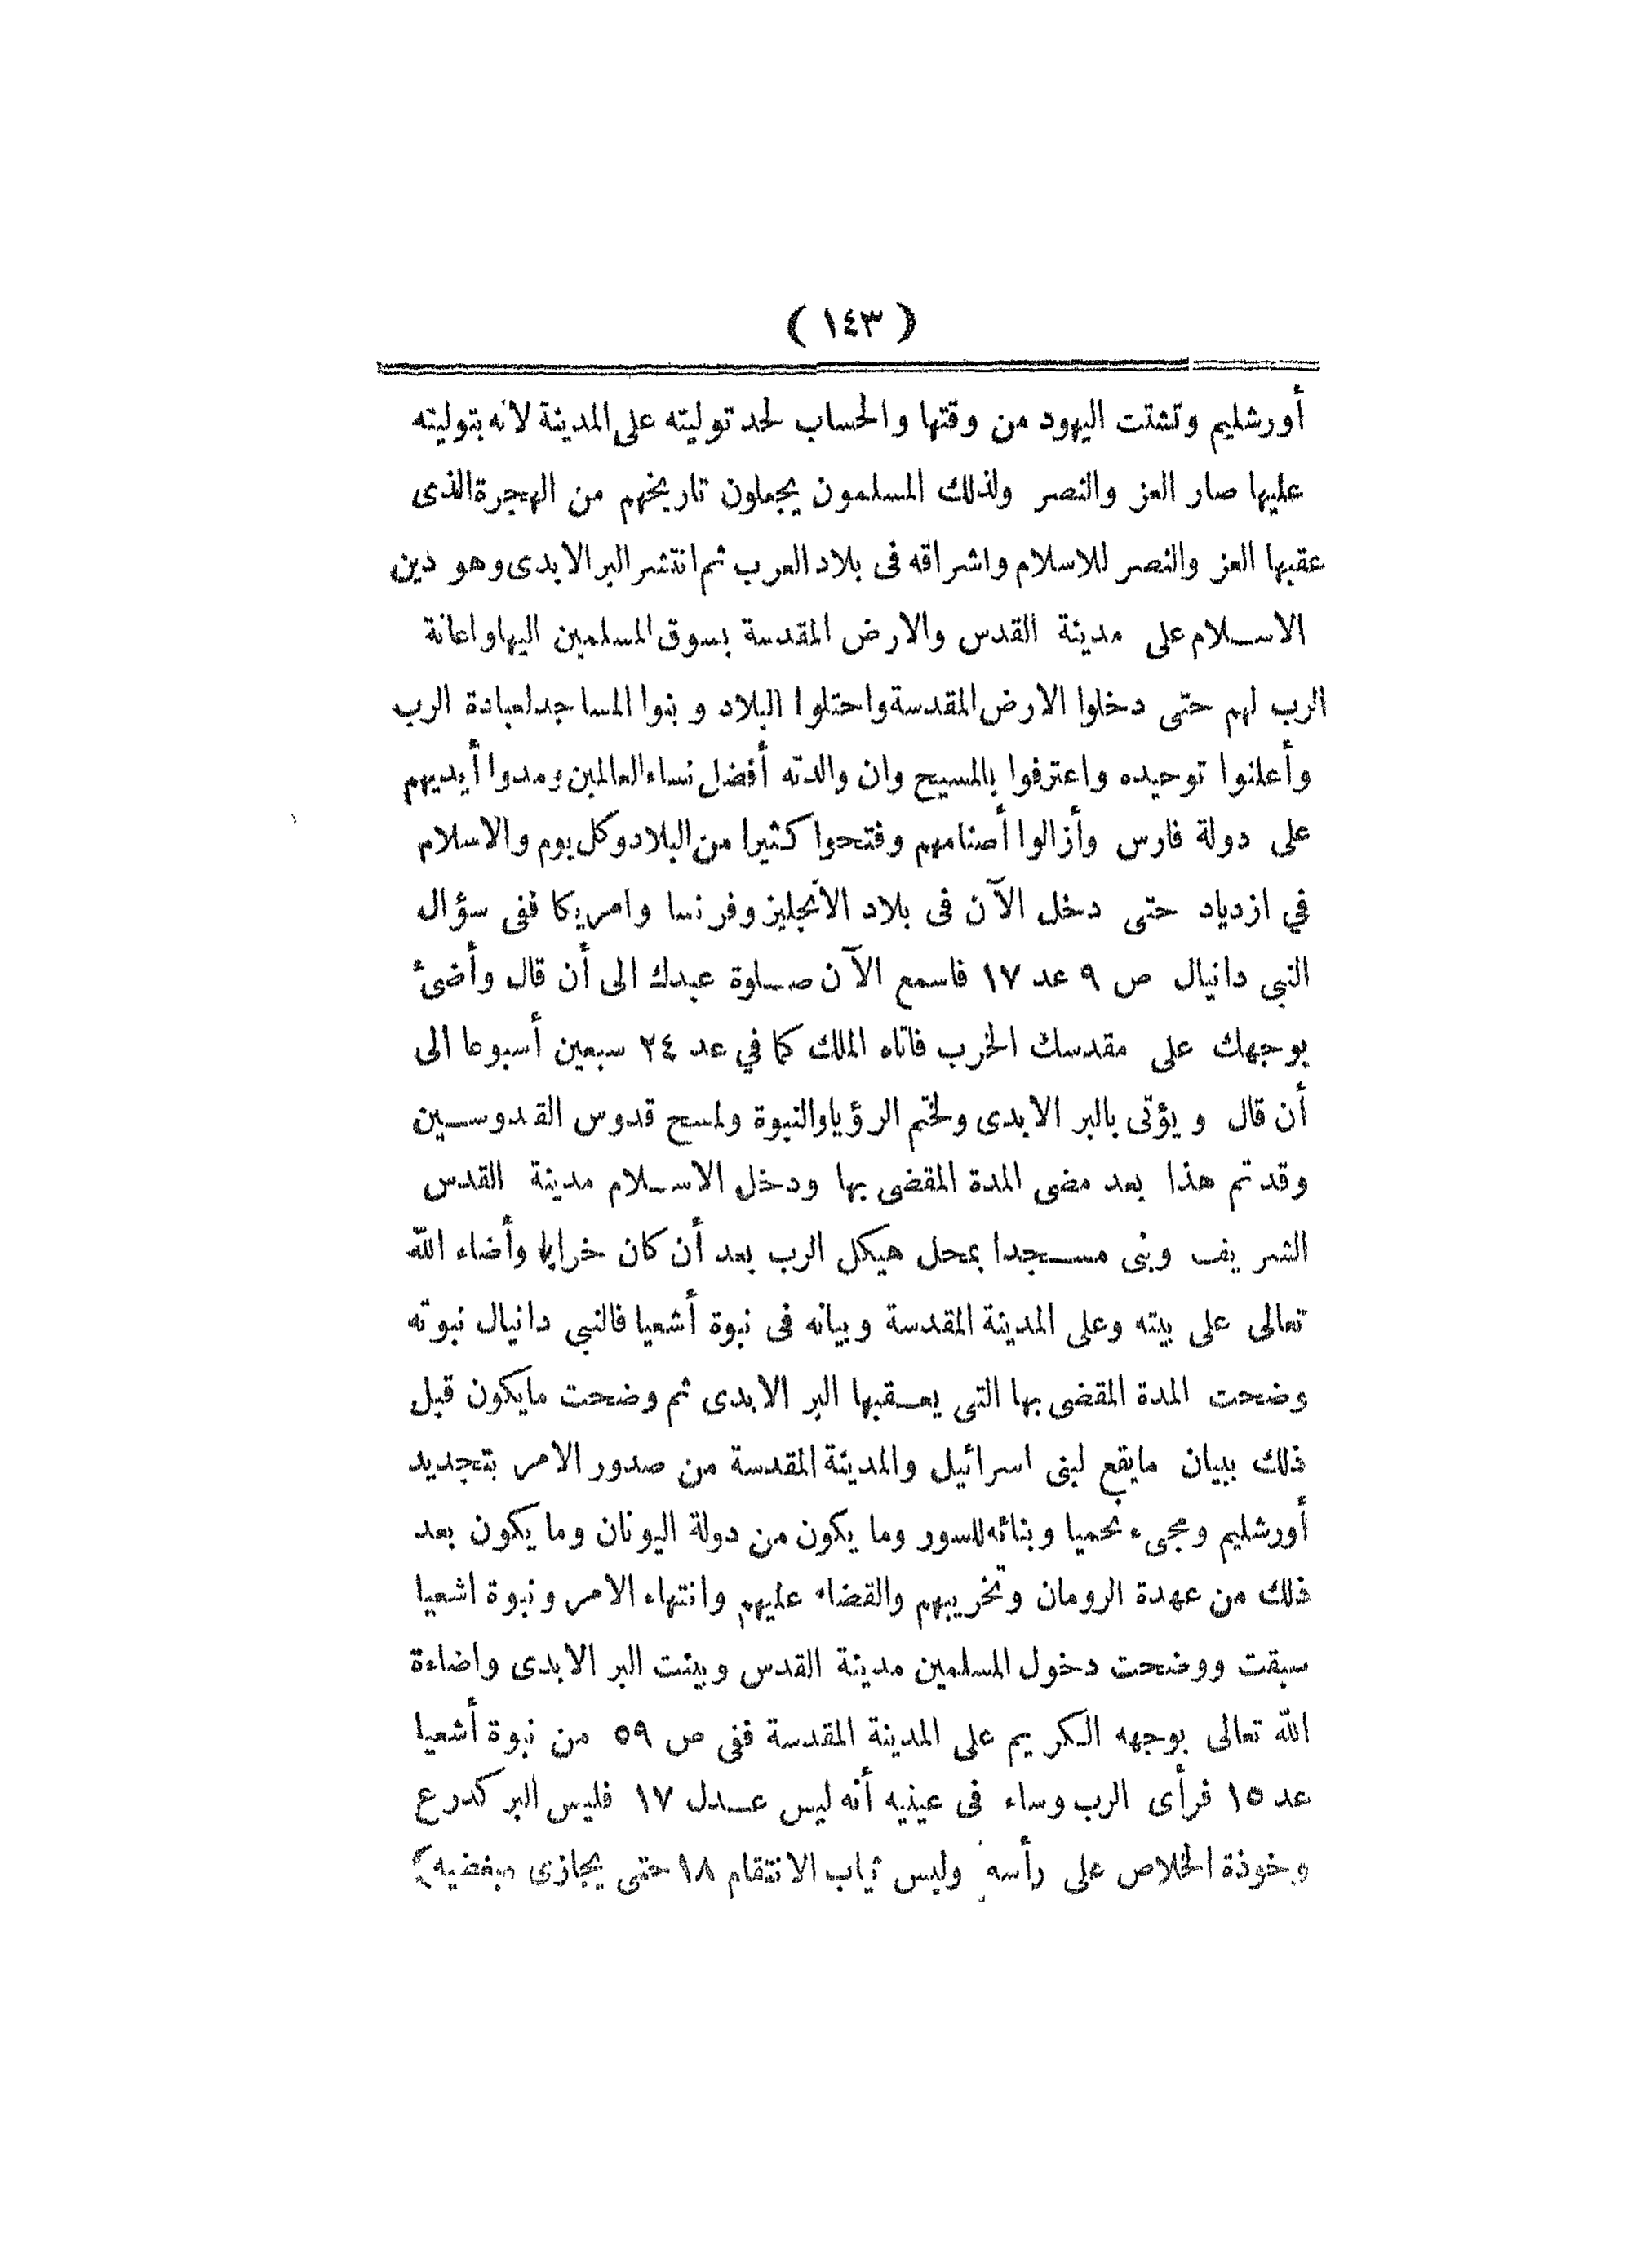 ( ١٤٣ )
أورشليم وتشتت اليهود من وقتها والحساب لحد توليته على المدينة لانه بتوليته
عليها صار العز والنصر ولذلك المسلمون يجعلون تاريخهم من الهجرة الذى
عقبها العز والنصر للاسلام واشراقه فى بلاد العرب ثم انتشر البر الابدى وهو دين
الاسـلام على مدينة القدس والارض المقدسة بسوق المسلمين اليها واعانة
الرب لهم حتى دخلوا الارض المقدسة واحتلوا البلاد وبنوا المساجد لعبادة الرب
وأعلنوا توحيده واعترفوا بالمسيح وان والدته أفضل نساء العالمين ومدوا أيديهم
على دولة فارس وأزالوا أصنامهم وفتحوا كثيرا من البلاد وكل يوم والاسلام
في ازدياد حتى دخل الآن فى بلاد الأنجليز وفرنسا وامريكا ففى سؤال
النبى دانيال ص ٩ عد ١٧ فاسمع الآن صـلوة عبدك الى أن قال وأضئ
بوجهك على مقدسك الخرب فاتاه الملك كما في عد ٢٤ سبعين أسبوعا الى
أن قال ويؤتى بالبر الابدى ولختم الرؤيا والنبوة ولمسح قدوس القدوسـين
وقد تم هذا بعد مضى المدة المقضى بها ودخل الاسـلام مدينة القدس
الشريف وبنى مسـجدا بمحل هيكل الرب بعد أن كان خرابا وأضاء الله
تعالى على بيته وعلى المدينة المقدسة وبيانه فى نبوة أشعيا فالنبي دانيال نبوته
وضحت المدة المقضى بها التى يعـقبها البر الابدى ثم وضحت مايكون قبل
ذلك ببيان مايقع لبنى اسرائيل والمدينة المقدسة من صدور الامر بتجديد
أورشليم ومجىء نحميا وبنائه للسور وما يكون من دولة اليونان وما يكون بعد
ذلك من عهدة الرومان وتخريبهم والقضاء عليهم وانتهاء الامر ونبوة اشعيا
سبقت ووضحت دخول المسلمين مدينة القدس وبينت البر الابدى واضاءة
الله تعالى بوجهه الكريم على المدينة المقدسة ففى ص ٥٩ من نبوة أشعيا
عد ١٥ فرأى الرب وساء فى عينيه أنه ليس عـدل ١٧ فليس البر كدرع
وخوذة الخلاص على رأسه وليس ثياب الانتقام ١٨ حتى يجازى مبغضيه